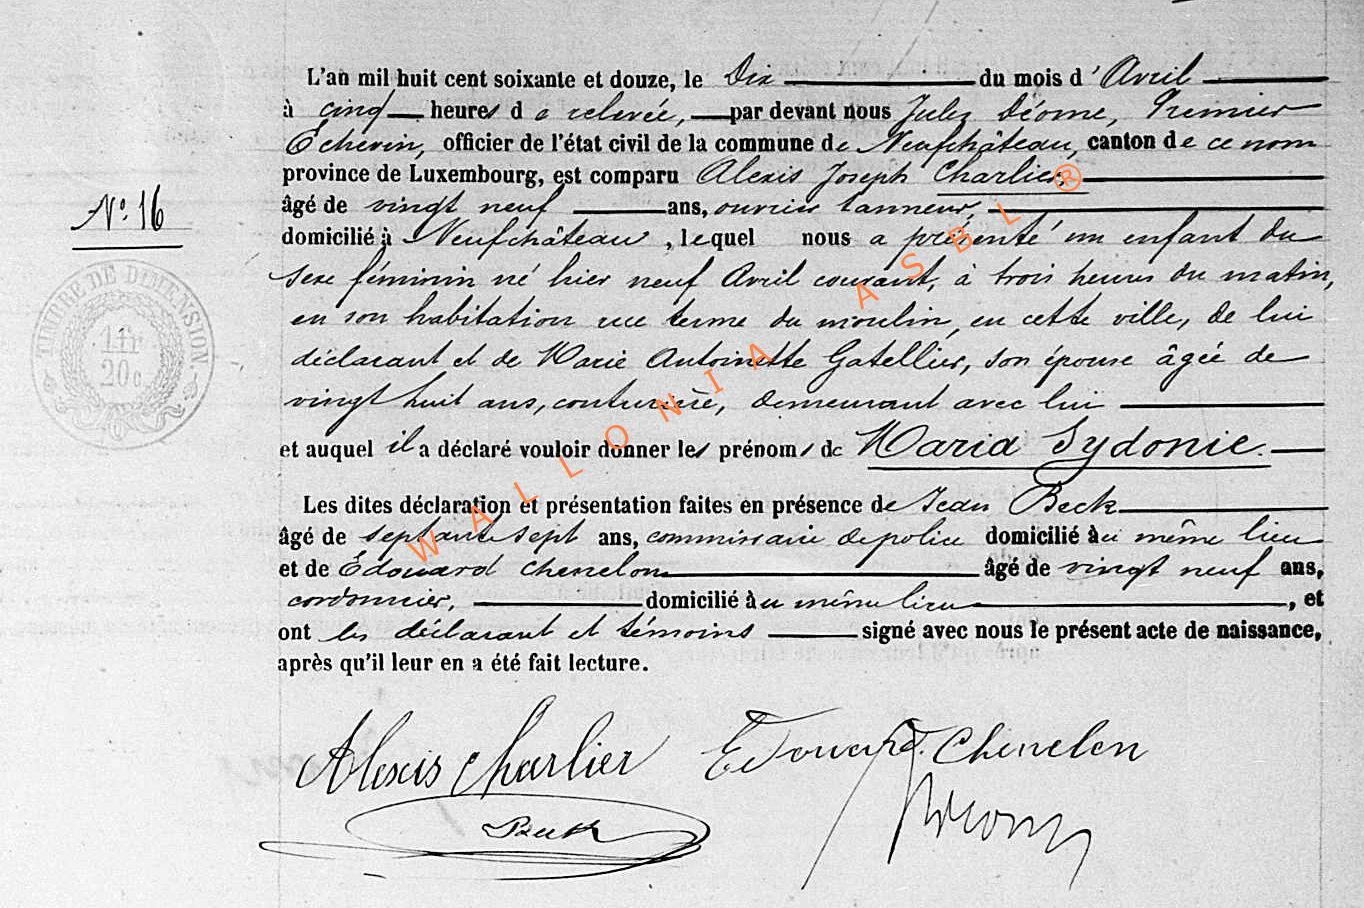 L'an mil huit cent soixante et douze, le Dix du mois d'Avril
à cinq heures de relevée, par devant nous Jules Déome, Premier
Echevin, officier de l'état civil de la commune de Neufchâteau, canton de ce nom
province de Luxembourg, est comparu Alexis Joseph Charlier,
N° 16
âgé de vingt neuf ans, ouvrier tanneur,
domicilié à Neufchâteau, lequel nous a présenté un enfant du
sexe féminin né hier neuf Avril courant, à trois heures du matin,
en son habitation rue terme du moulin, en cette ville, de lui
déclarant et de Marie Antoinette Gatellier, son épouse âgée de
vingt huit ans, couturière, demeurant avec lui
et auquel il a déclaré vouloir donner les prénoms de Maria Sydonie.
Les dites déclaration et présentation faites en présence de Jean Beck
âgé de septante sept ans, commissaire de police domicilié au même lieu
et de Édouard Chenelon âgé de vingt neuf ans,
cordonnier, domicilié au même lieu, et
ont les déclarant et témoins signé avec nous le présent acte de naissance,
après qu'il leur en a été fait lecture.
Alexis Charlier Edouard Chenelon
Beck
TIMBRE DE DIMENSION.
1 fr
20 c
WALLONIA ASBL ®